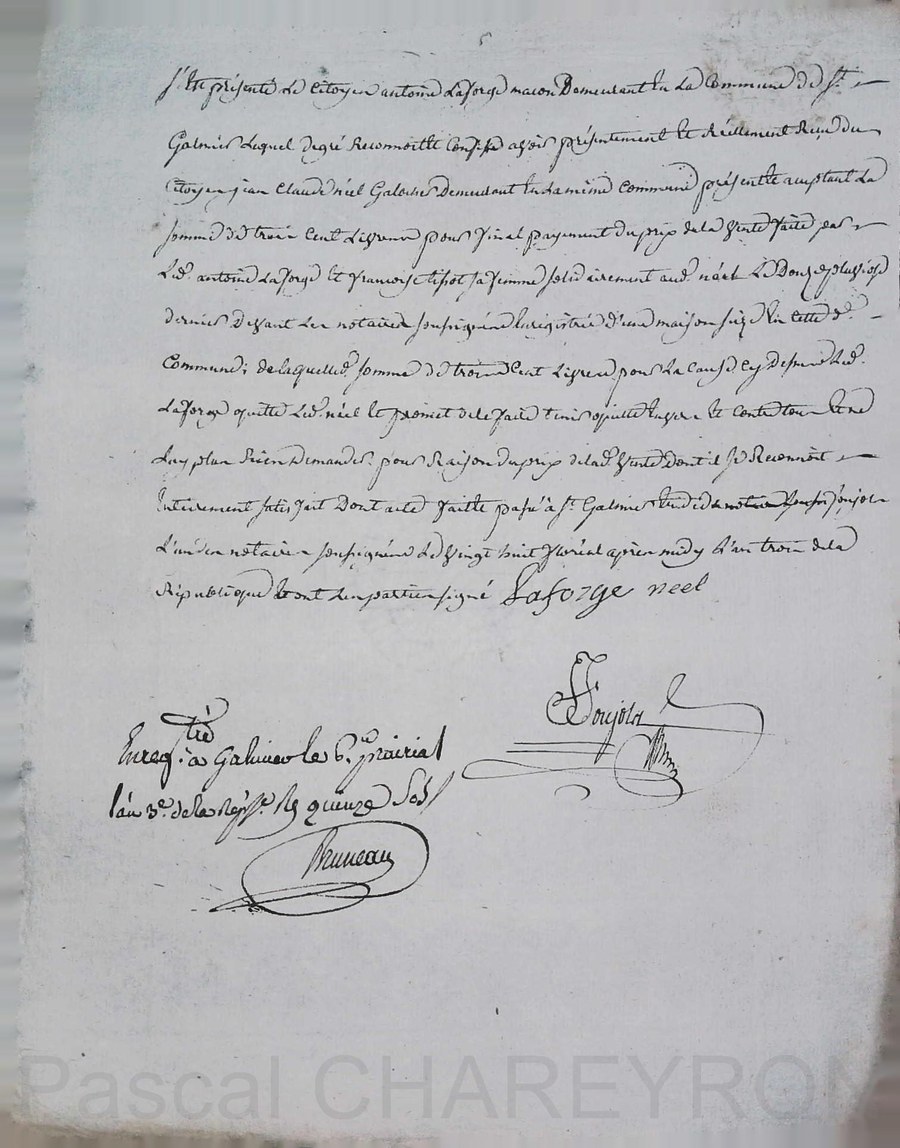 S'est présenté Le Citoyen antoine Laforge macon Demeurant En La Commune de St.
Galmier Lequel de gré Reconnoit et Confesse avoir présentement et Réellement Reçu du
Citoyen jean Claude néel Galocher Demeurant En La même Commune présent et acceptant La
somme de trois Cent Livres pour final payement du prix de la Vente faite par
Led. antoine Laforge et francoise tissot sa femme solidairement aud. néel Le Douze pluviose
dernier Devant Les notaires soussignés Enregistrée D'une maison size En Cette d.
Commune; de laquelle d. somme de trois Cent Livres pour La Cause Cy Dessus Led.
Laforge quitte Led. néel et promet de le faire tenir quitte Envers et Contre tous et ne
Luy plus Rien Demander pour Raison du prix de lad. Vente Dont il se Reconnoit
Entierement satisfait Dont acte faitte passé à St. Galmier Etude de Ponjols
L'un des notaires soussignés Le Vingt huit floréal apres midy L'an trois de la
République Et ont Les parties signé Laforge neel
Ponjols
Enregtré à Galmier le 6. prairial
l'an 3e. de la Répe. Rç quinze Sols
Bruneau
Pascal CHAREYRON